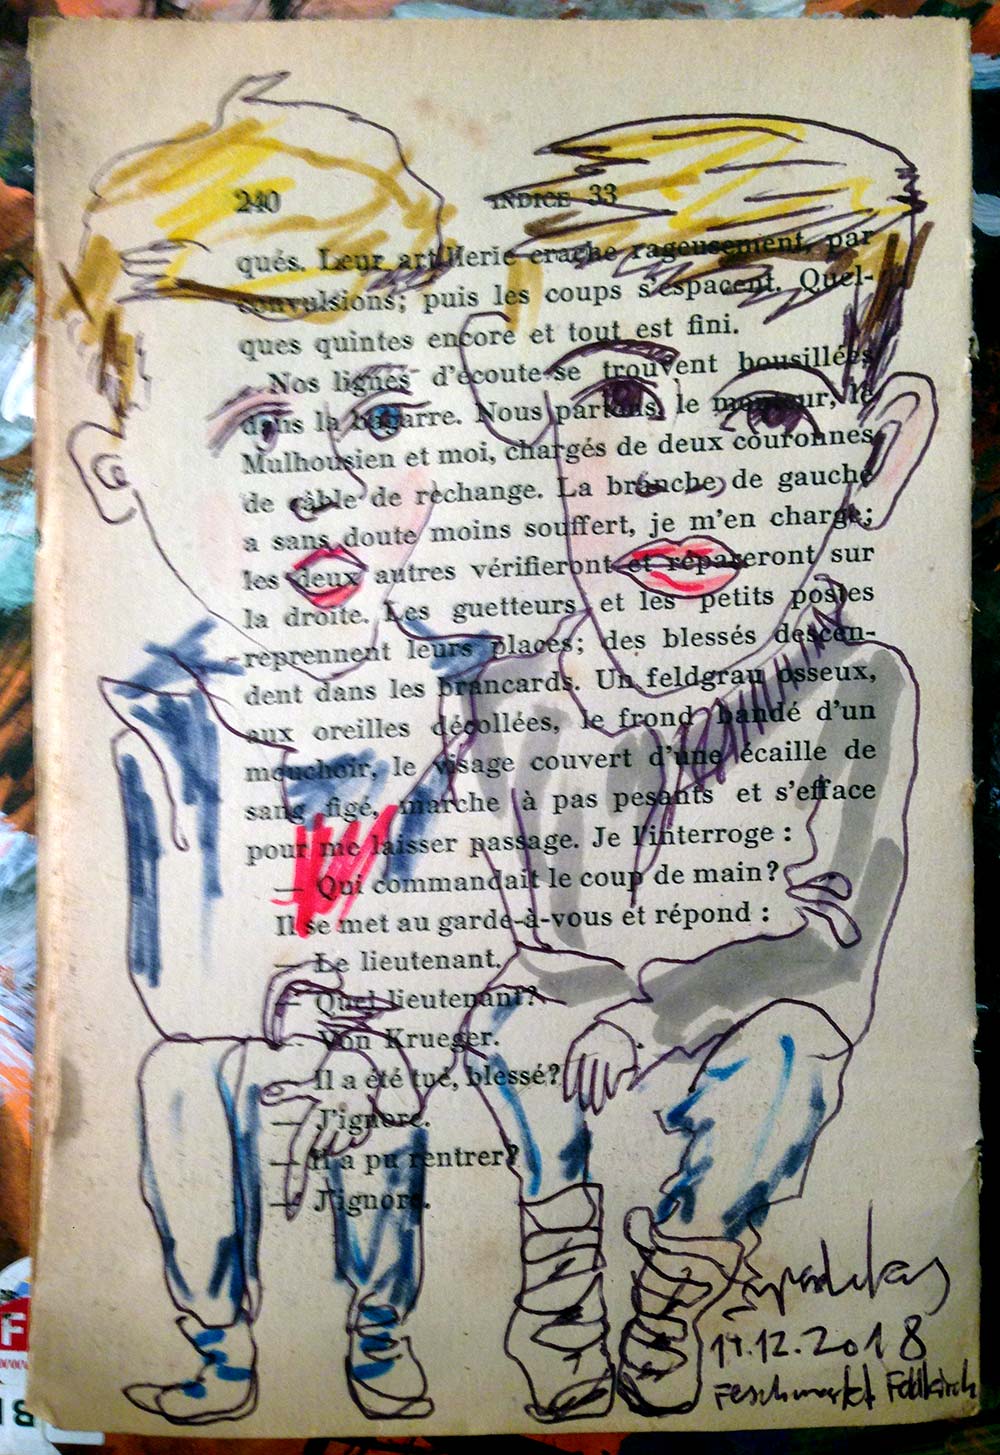 240 INDICE 33
qués. Leur artillerie crache rageusement, par
convulsions; puis les coups s'espacent. Quel-
ques quintes encore et tout est fini.
Nos lignes d'écoute se trouvent bousillées
dans la bagarre. Nous partons, le monteur, le
Mulhousien et moi, chargés de deux couronnes
de câble de rechange. La branche de gauche
a sans doute moins souffert, je m'en charge;
les deux autres vérifieront et répareront sur
la droite. Les guetteurs et les petits postes
reprennent leurs places; des blessés descen-
dent dans les brancards. Un feldgrau osseux,
aux oreilles décollées, le frond bandé d'un
mouchoir, le visage couvert d'une écaille de
sang figé, marche à pas pesants et s'efface
pour me laisser passage. Je l'interroge :
— Qui commandait le coup de main?
Il se met au garde-à-vous et répond :
— Le lieutenant.
— Quel lieutenant?
— Von Krueger.
— Il a été tué, blessé?
— J'ignore.
— Il a pu rentrer?
— J'ignore.
14.12.2018
Feschmarkt Feldkirch
F
18